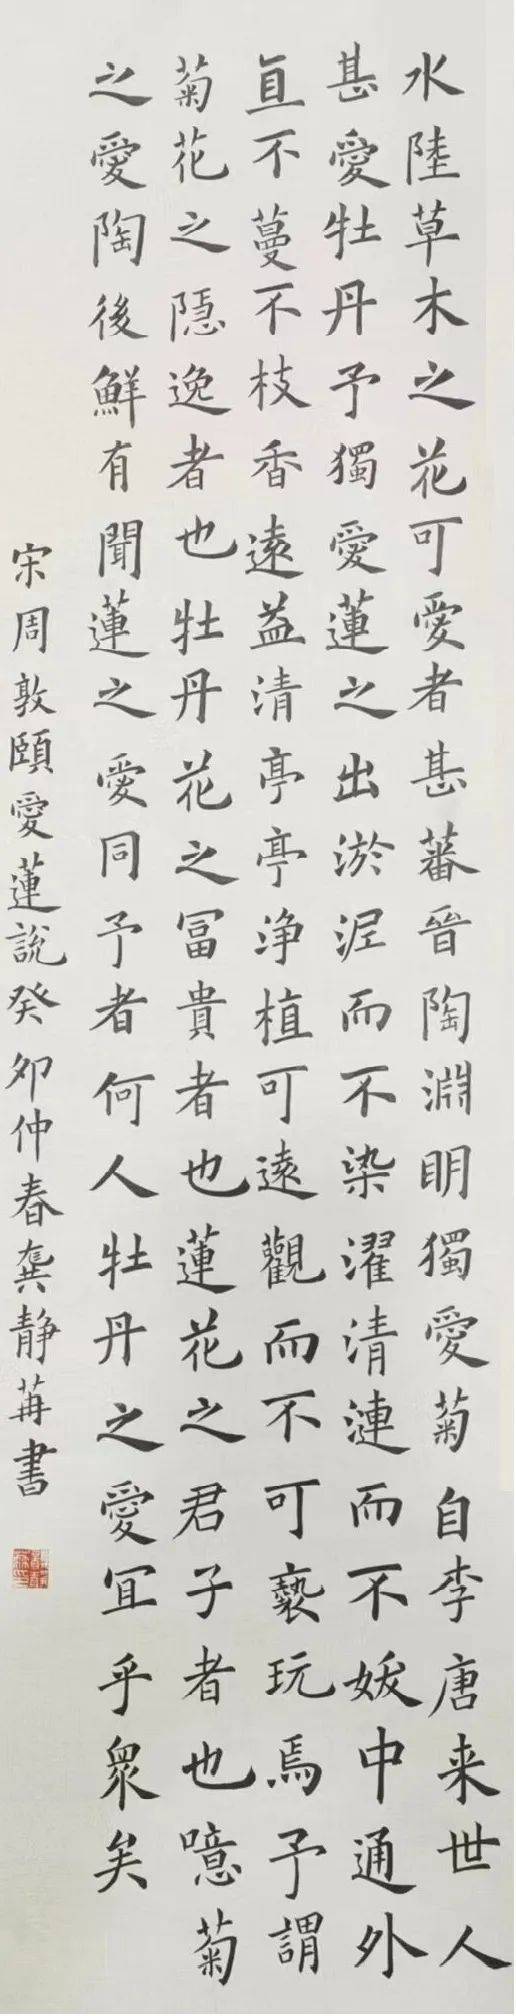 水陸草木之花可愛者甚蕃晉陶淵明獨愛菊自李唐来世人
甚愛牡丹予獨愛蓮之出淤泥而不染濯清漣而不妖中通外
直不蔓不枝香遠益清亭亭浄植可遠觀而不可褻玩焉予謂
菊花之隱逸者也牡丹花之冨貴者也蓮花之君子者也噫菊
之愛陶後鮮有聞蓮之愛同予者何人牡丹之愛冝乎衆矣
宋周敦頤愛蓮説癸卯仲春龔静苒書